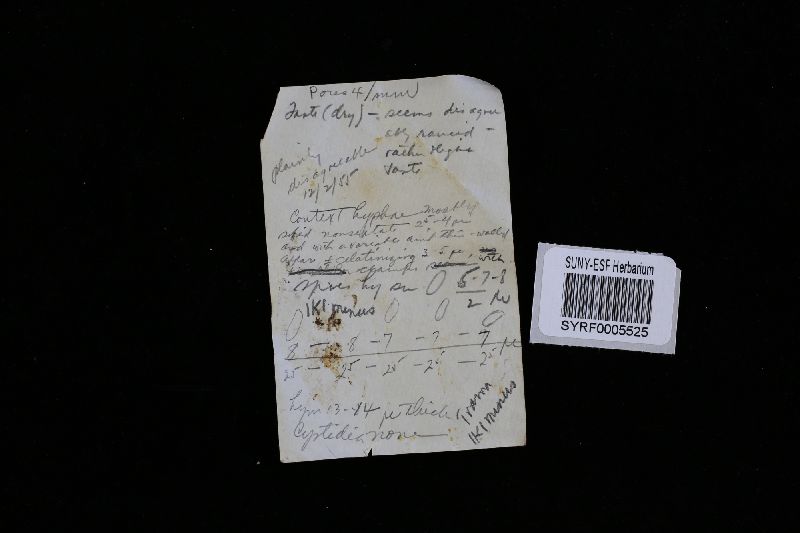 Pores 4/mm
Taste (dry) - seems disagree
ably rancid -
rather
taste
plainly
disagreeable
12/2/55
Context hyphae mostly
solid nonseptate 2⁵-4 µ
and with a variable and thin-walled
gelatinizing 3-5 µ, with
clamps
Spores hy sn 6-7-8
2 µ
IKI minus
8 - 8 - 7 - 7 - 7 µ
2⁵ - 2⁵ - 2⁵ - 2⁵ - 2⁵
Hym 13-14 µ thick
Cystidia none
Trama
IKI minus
SUNY-ESF Herbarium
SYRF0005525